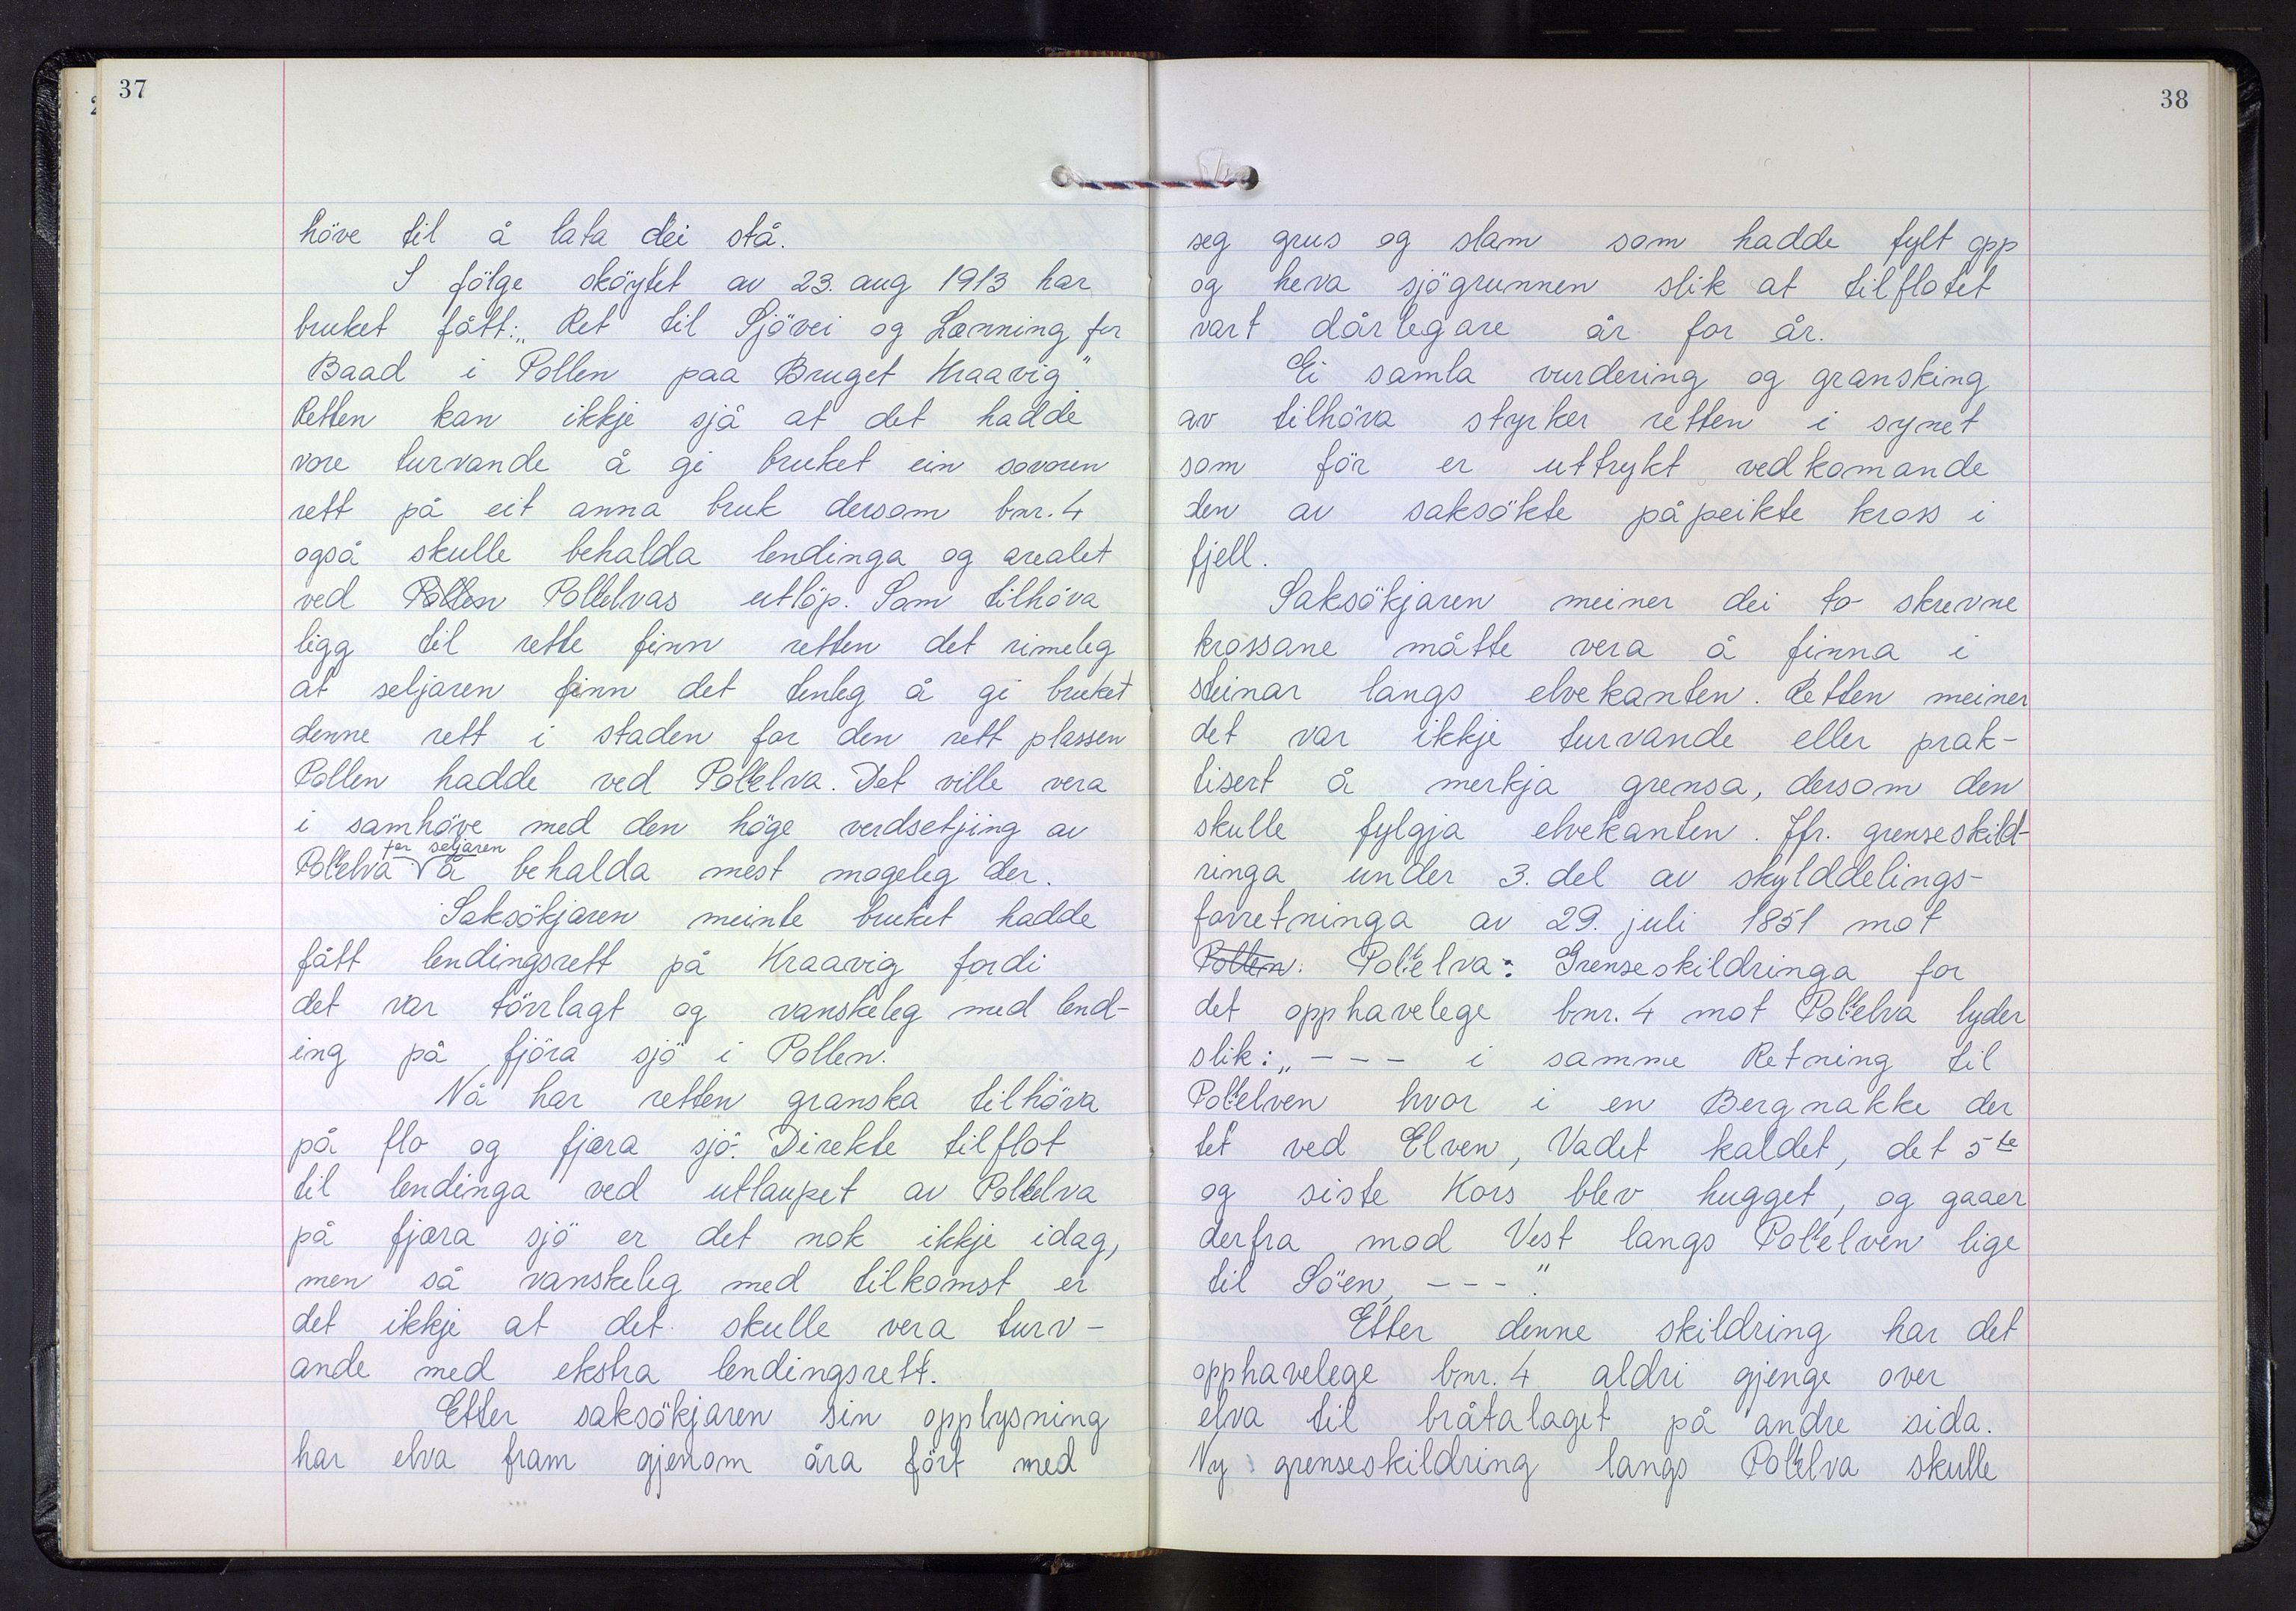 37
höve til å lata dei stå.
I fölge sköytet av 23. aug 1913 har
bruket fått: „Ret til Sjövei og Lænning for
Baad i Pollen paa Bruget Kraavig."
Retten kan ikkje sjå at det hadde
vore turvande å gi bruket ein sovoren
rett på eit anna bruk dersom bnr. 4
også skulle behalda lendinga og arealet
ved Pollen Pollelvas utlöp. Som tilhöva
ligg til rette finn retten det rimeleg
at seljaren finn det tenleg å gi bruket
denne rett i staden for den rett plassen
Pollen hadde ved Pollelva. Det ville vera
i samhöve med den höge verdsetjing av
for seljaren
Pollelva å behalda mest mogeleg der.
Saksökjaren meinte bruket hadde
fått lendingsrett på Kraavig fordi
det var törrlagt og vanskeleg med lend-
ing på fjöra sjö i Pollen.
Nå har retten granska tilhöva
på flo og fjæra sjö. Direkte tilflot
til lendinga ved utlaupet av Pollelva
på fjæra sjö er det nok ikkje idag,
men så vanskeleg med tilkomst er
det ikkje at det skulle vera turv-
ande med ekstra lendingsrett.
Etter saksökjaren sin opplysning
har elva fram gjenom åra fört med
38
seg grus og slam som hadde fylt opp
og heva sjögrunnen slik at tilflotet
vart dårlegare år for år.
Ei samla vurdering og gransking
av tilhöva styrker retten i synet
som för er uttrykt vedkomande
den av saksökte påpeikte kross i
fjell.
Saksökjaren meiner dei to skrevne
krossane måtte vera å finna i
steinar langs elvekanten. Retten meiner
det var ikkje turvande eller prak-
tisert å merkja grensa, dersom den
skulle fylgja elvekanten. Jfr. grenseskild-
ringa under 3. del av skylddelings-
forretninga av 29. juli 1851 mot
Pollen: Pollelva: Grenseskildringa for
det opphavelege bnr. 4 mot Pollelva lyder
slik: „ - - - i samme Retning til
Pollelven hvor i en Bergnakke der
tet ved Elven, Vadet kaldet, det 5te
og siste Kors blev hugget, og gaaer
derfra mod Vest langs Pollelven lige
til Söen, - - - "
Etter denne skildring har det
opphavelege bnr. 4 aldri gjenge over
elva til bråtalaget på andre sida.
Ny grenseskildring langs Pollelva skulle